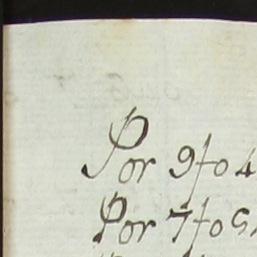 Por 9fo 4
Por 7fo 5